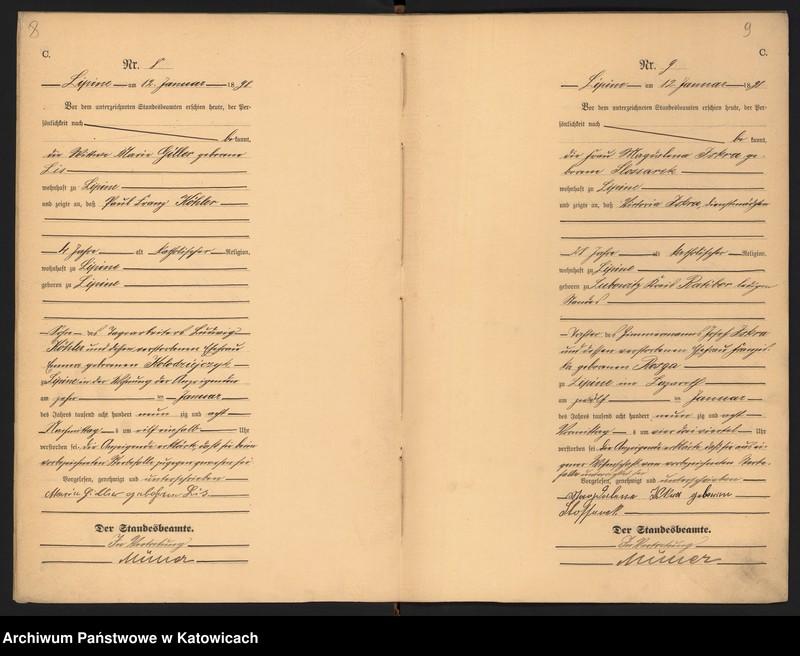 8
C.
Nr. 8
Lipine am 12. Januar 1898
Vor dem unterzeichneten Standesbeamten erschien heute, der Per-
sönlichkeit nach
be kannt,
die Witwe Marie Giller geborene
Lis
wohnhaft zu Lipine
und zeigte an, daß Paul Franz Köhler
4 Jahre alt katholischer Religion,
wohnhaft zu Lipine
geboren zu Lipine
Sohn des Tagearbeiters Ludwig
Köhler und dessen verstorbenen Ehefrau
Emma geborenen Kolodziejczyk
zu Lipine in der Wohnung der Anzeigenden
am Januar
des Jahres tausend acht hundert neun zig und acht
Nachmittag s um elf einhalb Uhr
verstorben sei. Die Anzeigende erklärte, daß sie beim
vorbezeichneten Sterbefalle zugegen gewesen sei
Vorgelesen, genehmigt und unterschrieben
Marie Giller geborene Lis
Der Standesbeamte.
In Vertretung
9
C.
Nr. 9
Lipine am 12. Januar 1898
Vor dem unterzeichneten Standesbeamten erschien heute, der Per-
sönlichkeit nach
be kannt,
die Frau Magdalena Iskra ge-
borene Slossarek
wohnhaft zu Lipine
und zeigte an, daß Victoria Iskra, Dienstmädchen
21 Jahre alt katholischer Religion,
wohnhaft zu Lipine
geboren zu Lubowitz Kreis Ratibor ledigen
Standes
Tochter des Zimmermanns Josef Iskra
und dessen verstorbenen Ehefrau Franzis-
ka geborenen
zu Lipine im Lazareth
am zwölf ten Januar
des Jahres tausend acht hundert neun zig und acht
Vormittag s um vier drei viertel Uhr
verstorben sei. Die Anzeigende erklärte, daß sie aus ei-
gener Wissenschaft von vorbezeichneten Sterbe-
falle unterrichtet sei
Vorgelesen, genehmigt und unterschrieben
Magdalena Iskra geborene
Slossarek
Der Standesbeamte.
In Vertretung
Archiwum Państwowe w Katowicach